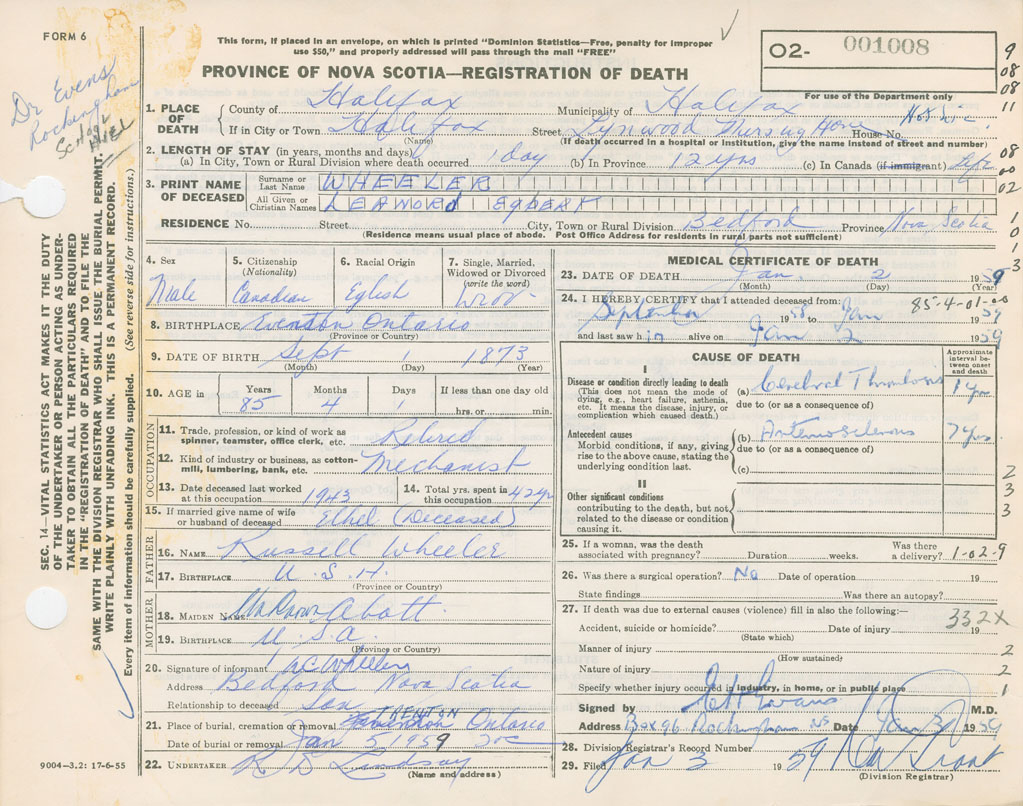 FORM 6
This form, if placed in an envelope, on which is printed "Dominion Statistics—Free, penalty for improper
use $50," and properly addressed will pass through the mail "FREE"
PROVINCE OF NOVA SCOTIA—REGISTRATION OF DEATH
O2- 001008
For use of the Department only
9
08
08
11
Dr Evens
Rockingham
1. PLACE OF DEATH
County of Halifax Municipality of Halifax
If in City or Town Halifax Street Lynwood Nursing Home House No.
(Name) (If death occurred in a hospital or institution, give the name instead of street and number)
2. LENGTH OF STAY (in years, months and days)
(a) In City, Town or Rural Division where death occurred 1 day (b) In Province 12 yrs (c) In Canada (if immigrant) Life
08
00
02
3. PRINT NAME OF DECEASED
Surname or Last Name WHEELER
All Given or Christian Names EGBERT
RESIDENCE No. Street City, Town or Rural Division Bedford Province Nova Scotia
(Residence means usual place of abode. Post Office Address for residents in rural parts not sufficient)
1
0
1
3
4. Sex Male
5. Citizenship (Nationality) Canadian
6. Racial Origin Eglish
7. Single, Married, Widowed or Divorced (write the word)
8. BIRTHPLACE Ontario
(Province or Country)
9. DATE OF BIRTH Sept 1 1873
(Month) (Day) (Year)
10. AGE in Years 85 Months 4 Days 1 If less than one day old
hrs. or min.
OCCUPATION
11. Trade, profession, or kind of work as spinner, teamster, office clerk, etc. Retired
12. Kind of industry or business, as cotton-mill, lumbering, bank, etc. Mechanist
13. Date deceased last worked at this occupation 1943
14. Total yrs. spent in this occupation 42 yr
15. If married give name of wife or husband of deceased Ethel (Deceased)
FATHER
16. NAME Russell Wheeler
17. BIRTHPLACE U.S.A.
(Province or Country)
MOTHER
18. MAIDEN NAME Abott
19. BIRTHPLACE U.S.A.
(Province or Country)
20. Signature of informant Wheeler
Address Bedford Nova Scotia
Relationship to deceased son
21. Place of burial, cremation or removal TRENTON Ontario
Date of burial or removal Jan 5 1959
22. UNDERTAKER Lindsay
(Name and address)
MEDICAL CERTIFICATE OF DEATH
23. DATE OF DEATH Jan. 2 1959
(Month) (Day) (Year)
24. I HEREBY CERTIFY that I attended deceased from: 85-4-01-00
September 1958 to Jan 1959
and last saw him alive on Jan 2 1959
CAUSE OF DEATH
Approximate interval between onset and death
I
Disease or condition directly leading to death
(This does not mean the mode of dying, e.g., heart failure, asthenia, etc. It means the disease, injury, or complication which caused death.)
(a) Cerebral Thrombosis 1 yr
due to (or as a consequence of)
Antecedent causes
Morbid conditions, if any, giving rise to the above cause, stating the underlying condition last.
(b) 7 yrs
due to (or as a consequence of)
(c)
II
Other significant conditions
contributing to the death, but not related to the disease or condition causing it.
2
3
3
3
25. If a woman, was the death associated with pregnancy? Duration weeks. Was there a delivery? 1-02-9
26. Was there a surgical operation? No Date of operation 19
State findings Was there an autopsy?
27. If death was due to external causes (violence) fill in also the following:—
332X
Accident, suicide or homicide? Date of injury 19
(State which)
Manner of injury 2
(How sustained)
Nature of injury 2
Specify whether injury occurred in industry, in home, or in public place 1
Signed by Evans M.D.
Address Box 96 Rockingham NS Date Jan 1959
28. Division Registrar's Record Number
29. Filed Jan 3 1959
(Division Registrar)
9004—3.2: 17-6-55
SEC. 14—VITAL STATISTICS ACT MAKES IT THE DUTY
OF THE UNDERTAKER OR PERSON ACTING AS UNDER-
TAKER TO OBTAIN ALL THE PARTICULARS REQUIRED
IN THE "REGISTRATION OF DEATH" AND TO FILE THE
SAME WITH THE DIVISION REGISTRAR WHO SHALL ISSUE THE BURIAL PERMIT.
WRITE PLAINLY WITH UNFADING INK. THIS IS A PERMANENT RECORD.
Every item of information should be carefully supplied. (See reverse side for instructions.)